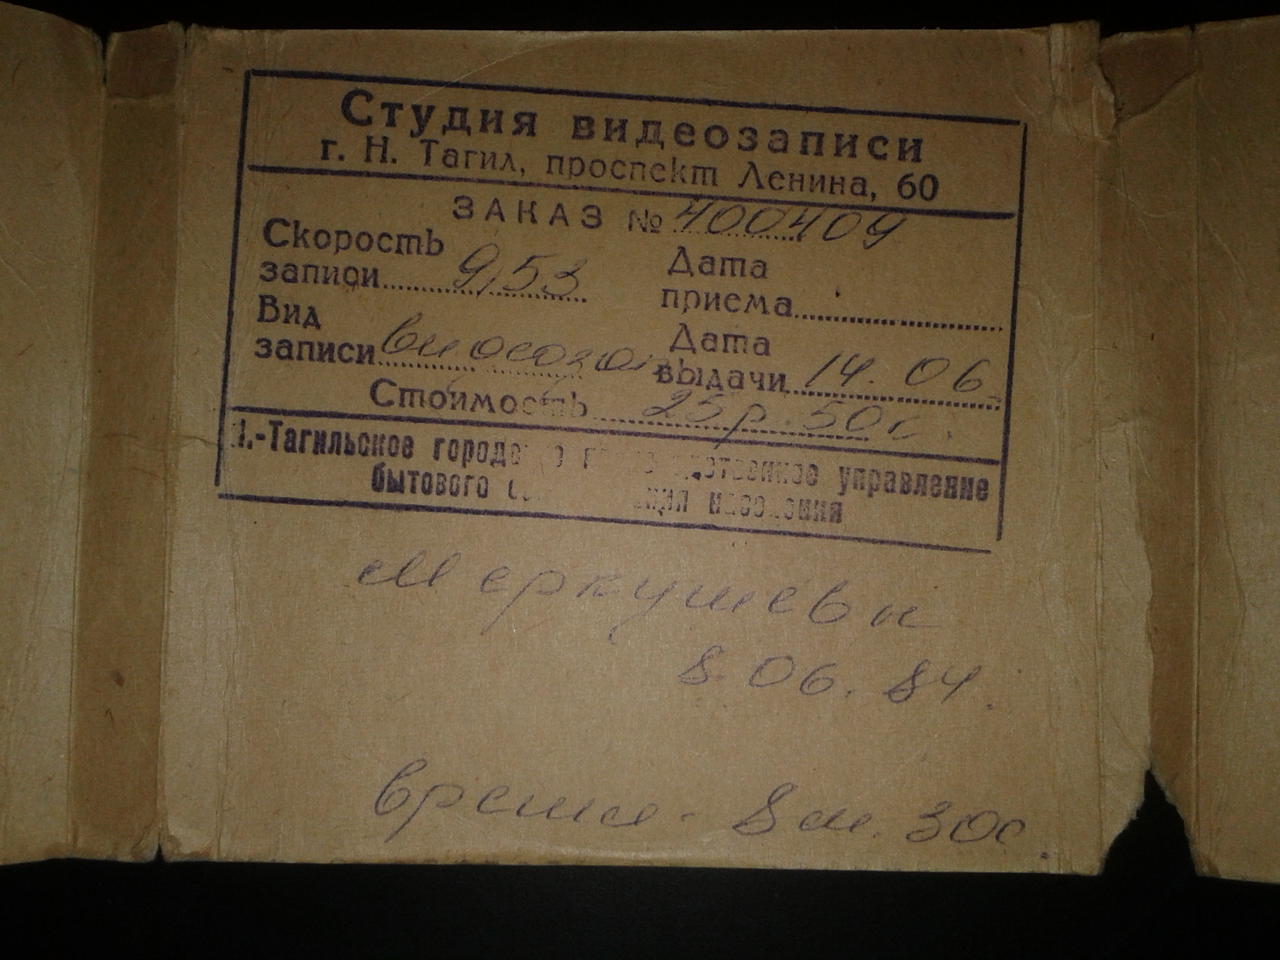 Студия видеозаписи
г. Н. Тагил, проспект Ленина, 60
ЗАКАЗ № 400409
Скорость
записи 9,53
Дата
приема
Вид
записи
Дата
выдачи 14.06
Стоимость 25р. 50к.
Н.-Тагильское городское производственное управление
бытового населения
Меркушевы
8.06.84.
время - 8 м. 30с.